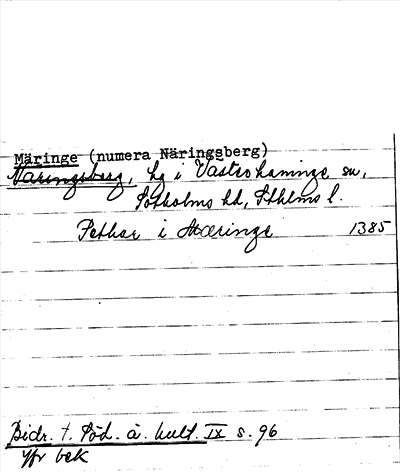 Märinge (numera Näringsberg)
Näringsberg, hg i Västerhaninge sn,
Sotholms hd, Sthlms l.
Pethar i Mæringe 1385
Bidr. t. Söd. ä. kult. IX s. 96